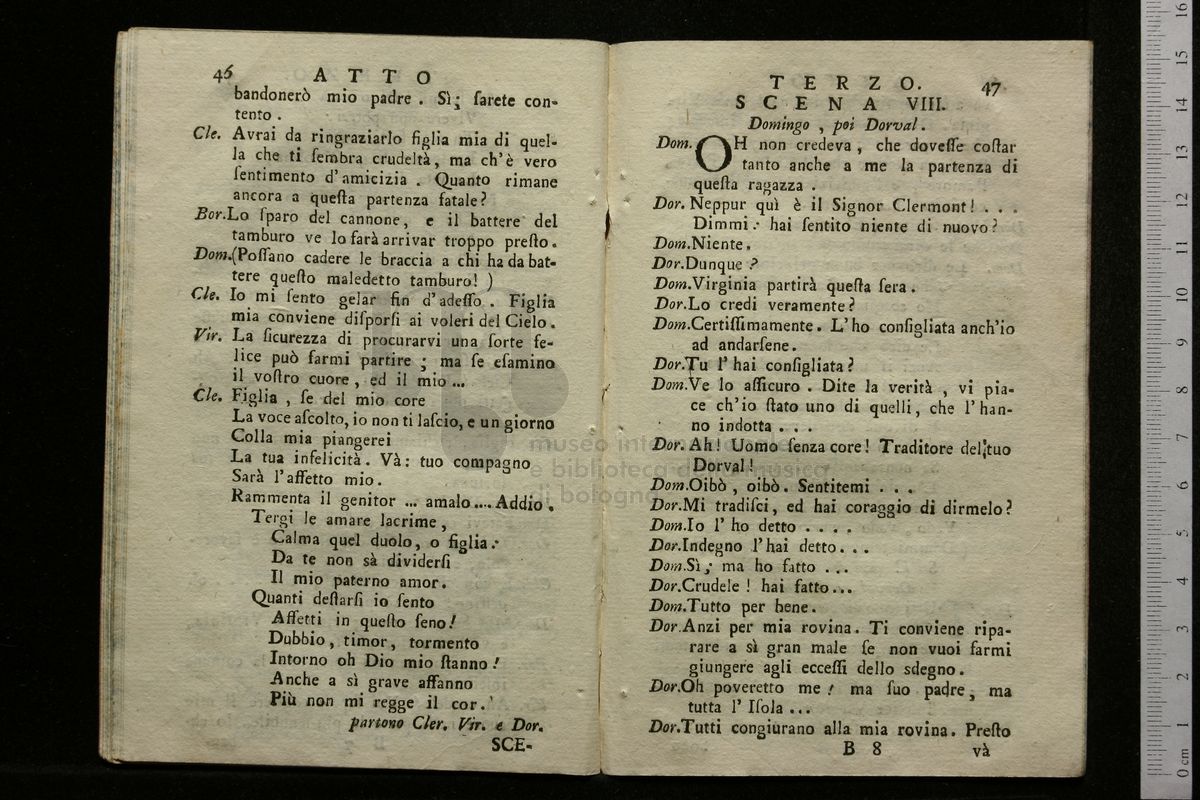 46 A T T O
bandonerò mio padre . Sì; ſarete con-
tento .
Cle. Avrai da ringraziarlo figlia mia di quel-
la che ti ſembra crudeltà, ma ch'è vero
ſentimento d'amicizia . Quanto rimane
ancora a queſta partenza fatale?
Bor. Lo ſparo del cannone, e il battere del
tamburo ve lo farà arrivar troppo preſto.
Dom. (Poſſano cadere le braccia a chi ha da bat-
tere queſto maledetto tamburo! )
Cle. Io mi ſento gelar fin d'adeſſo . Figlia
mia conviene diſporſi ai voleri del Cielo.
Vir. La ſicurezza di procurarvi una ſorte fe-
lice può farmi partire ; ma ſe eſamino
il voſtro cuore, ed il mio ...
Cle. Figlia , ſe del mio core
La voce aſcolto, io non ti laſcio, e un giorno
Colla mia piangerei
La tua infelicità. Và: tuo compagno
Sarà l'affetto mio.
Rammenta il genitor ... amalo.... Addio.
Tergi le amare lacrime,
Calma quel duolo, o figlia:
Da te non sà dividerſi
Il mio paterno amor.
Quanti deſtarſi io ſento
Affetti in queſto ſeno!
Dubbio, timor, tormento
Intorno oh Dio mio ſtanno!
Anche a sì grave affanno
Più non mi regge il cor.
partono Cler. Vir. e Dor.
SCE-
T E R Z O. 47
S C E N A VIII.
Domingo , poi Dorval.
Dom. OH non credeva, che doveſſe coſtar
tanto anche a me la partenza di
queſta ragazza .
Dor. Neppur quì è il Signor Clermont! . . .
Dimmi: hai ſentito niente di nuovo?
Dom. Niente.
Dor. Dunque ?
Dom. Virginia partirà queſta ſera.
Dor. Lo credi veramente?
Dom. Certiſſimamente. L'ho conſigliata anch'io
ad andarſene.
Dor. Tu l' hai conſigliata?
Dom. Ve lo aſſicuro . Dite la verità , vi pia-
ce ch'io ſtato uno di quelli, che l' han-
no indotta . . .
Dor. Ah! Uomo ſenza core! Traditore del tuo
Dorval!
Dom. Oibò , oibò. Sentitemi . . .
Dor. Mi tradiſci, ed hai coraggio di dirmelo?
Dom. Io l' ho detto . . . .
Dor. Indegno l'hai detto. . .
Dom. Sì; ma ho fatto . . .
Dor. Crudele ! hai fatto...
Dom. Tutto per bene.
Dor. Anzi per mia rovina. Ti conviene ripa-
rare a sì gran male ſe non vuoi farmi
giungere agli ecceſſi dello sdegno.
Dor. Oh poveretto me! ma ſuo padre, ma
tutta l' Iſola ...
Dor. Tutti congiurano alla mia rovina. Preſto
B 8 và
museo internazionale
e biblioteca della musica
di bologna
0 cm 1 2 3 4 5 6 7 8 9 10 11 12 13 14 15 16